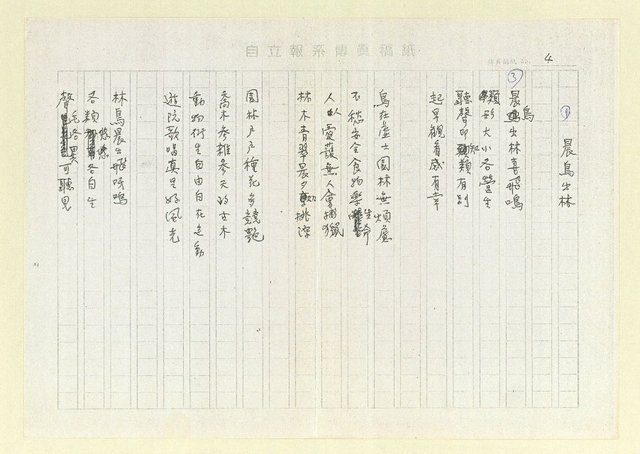 自立報系傳真稿紙
4
① 晨鳥出林
③
晨鳥出林喜飛鳴
類形大小各營生
聽聲即知類有別
起早觀看感有幸
鳥在虛士園林無煩慮
不愁安全食物樂生命
人以愛護無人會捕獵
林木青翠晨夕跳探
園林戶戶種花多競艷
喬木參雜參天的古木
動物衍生自由自在走動
遊院歌唱真是好風光
林鳥晨出飛咬鳴
各類悠悠各自生
聲毛各異可聽見